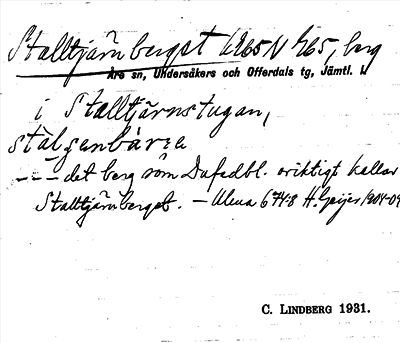 Stalltjärnberget 1265N 465, berg
Åre sn, Undersåkers och Offerdals tg, Jämtl. l.
i Stalltjärnstugan,
--- det berg som Dafsdbl. oriktigt kallar
Stalltjärnberget. – Ulma 674:8 H. Geijer 1904-09
C. LINDBERG 1931.